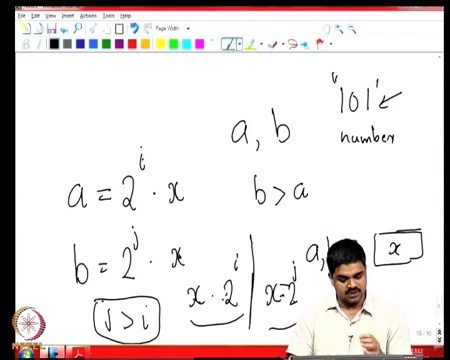 File Edit View Insert Actions Tools Help
Page Width
"101"
number
a, b
a = 2^i · x
b > a
b = 2^j · x
a, b
x
j > i
x · 2^i
x = 2^j